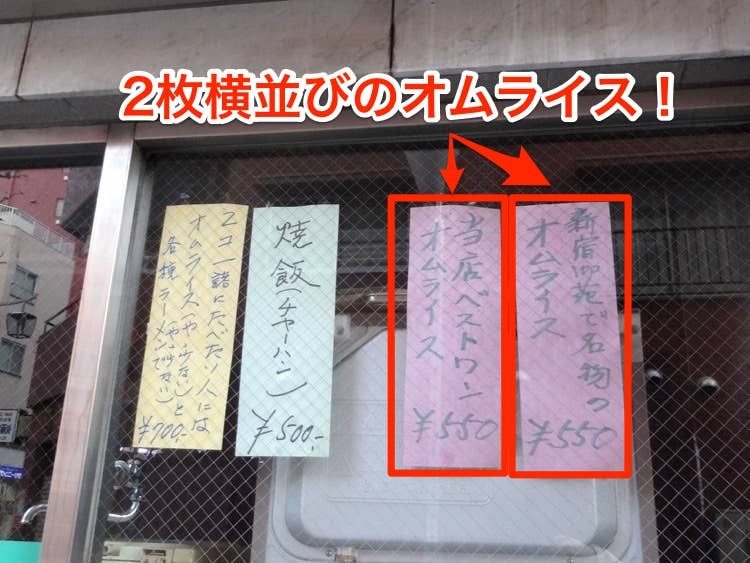 2枚横並びのオムライス！
新宿御苑で名物の
オムライス
¥550
当店ベストワン
オムライス
¥550
焼飯(チャーハン)
¥500.-
2コ一諸にたべたい人には
オムライス(や少ない)と
各種ラーメン(や少ない)で
¥700.-